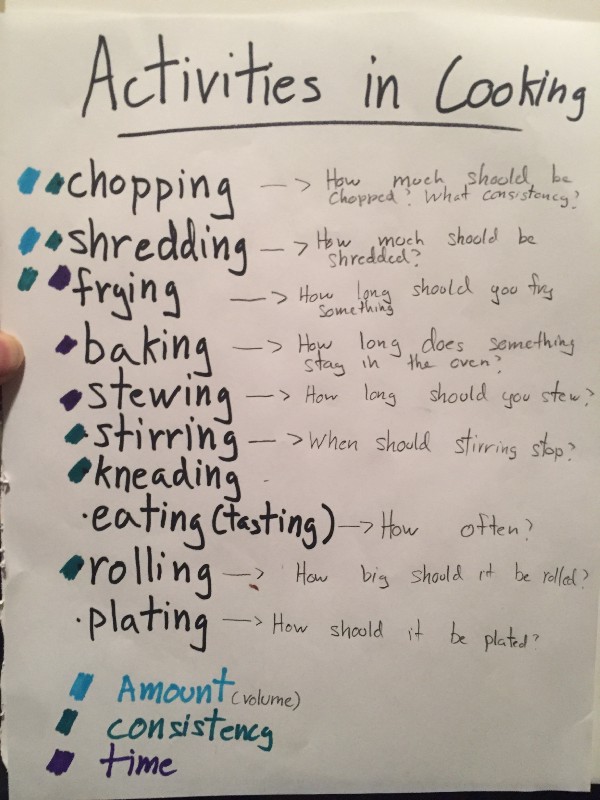 Activities in Cooking
chopping —> How much should be
chopped? What consistency?
shredding —> How much should be
shredded?
frying —> How long should you fry
something
baking —> How long does something
stay in the oven?
stewing —> How long should you stew?
stirring —> When should stirring stop?
kneading
·eating (tasting) —> How often?
rolling —> How big should it be rolled?
·plating —> How should it be plated?
Amount (volume)
consistency
time